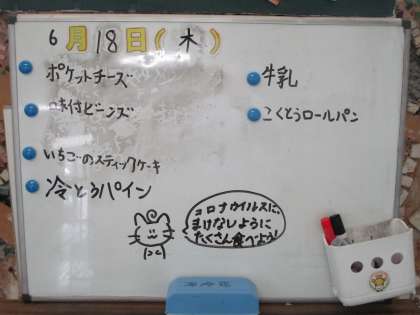 6月18日(木)
ポケットチーズ
味付ビーンズ
いちごのスティックケーキ
冷とうパイン
牛乳
こくとうロールパン
コロナウイルスに、
まけなしように
たくさん食べよう!